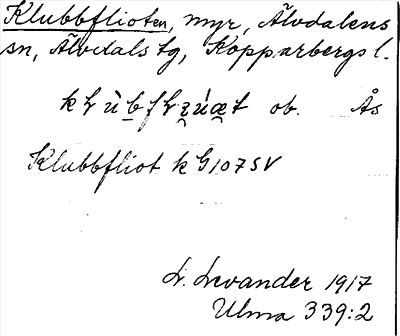 Klubbflioten, myr, Älvdalens
sn, Älvdals tg, Kopparbergs l.
ob. Ås
Klubbfliot k G 107 SV
L. Levander 1917
Ulma 339:2